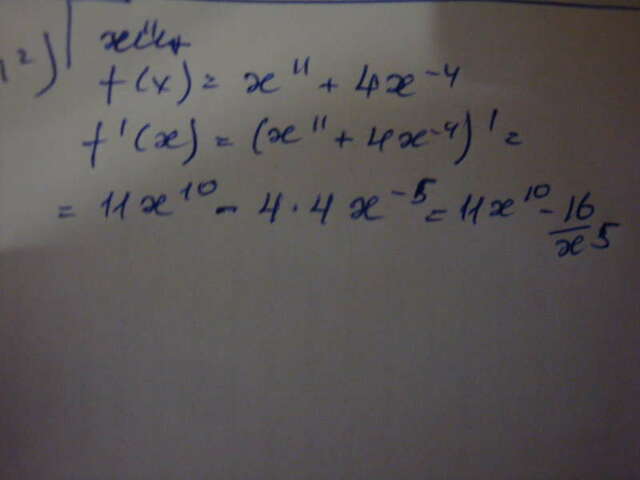 12)
f(x) = x¹¹ + 4x⁻⁴
f'(x) = (x¹¹ + 4x⁻⁴)' =
= 11x¹⁰ - 4·4x⁻⁵ = 11x¹⁰ - 16/x⁵